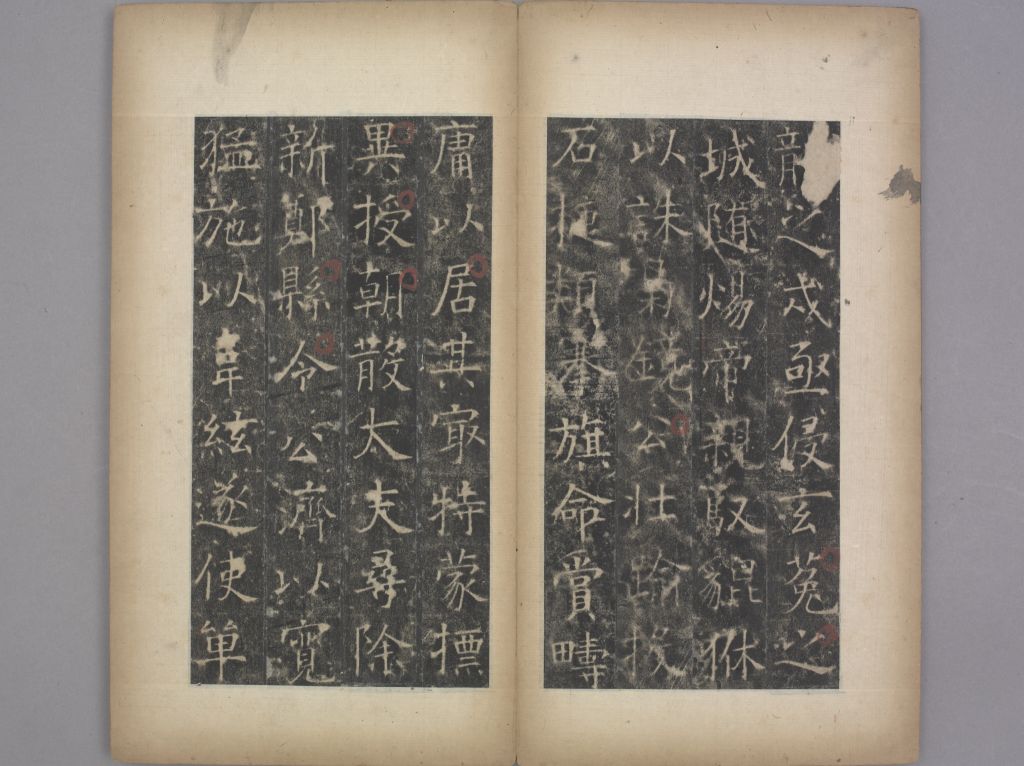 龍之戍亟侵玄菟之
城随煬帝親馭貔貅
以誅梟鏡公壮踰投
石類搴旗命賞疇
庸以居其冣特蒙摽
異授朝散太夫尋除
新鄭縣令公濟以寬
猛施以韋絃遂使單